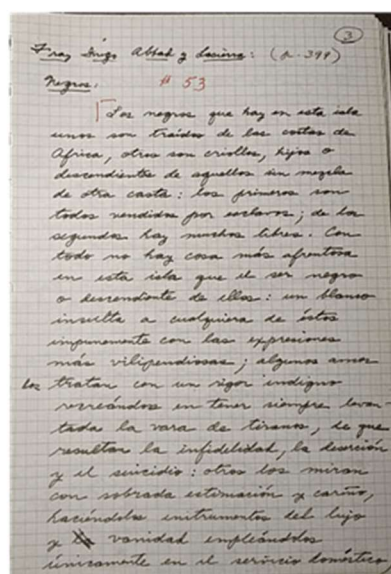 3
Fray Íñigo Abbad y Lasierra: (p. 399)
Negros. # 53
Los negros que hay en esta isla
unos son traídos de las costas de
Africa, otros son criollos, hijos o
descendientes de aquellos sin mezcla
de otra casta: los primeros son
todos vendidos por esclavos; de los
segundos hay muchos libres. Con
todo no hay cosa más afrentosa
en esta isla que el ser negro
o descendiente de ellos: un blanco
insulta a cualquiera de éstos
impunemente con las expresiones
más vilipendiosas; algunos amos
los tratan con un rigor indigno
recreándose en tener siempre levan-
tada la vara de tiranos, de que
resultan la infidelidad, la deserción
y el suicidio: otros los miran
con sobrada estimación y cariño,
haciéndolos instrumentos del lujo
y vanidad empleándolos
únicamente en el servicio doméstico